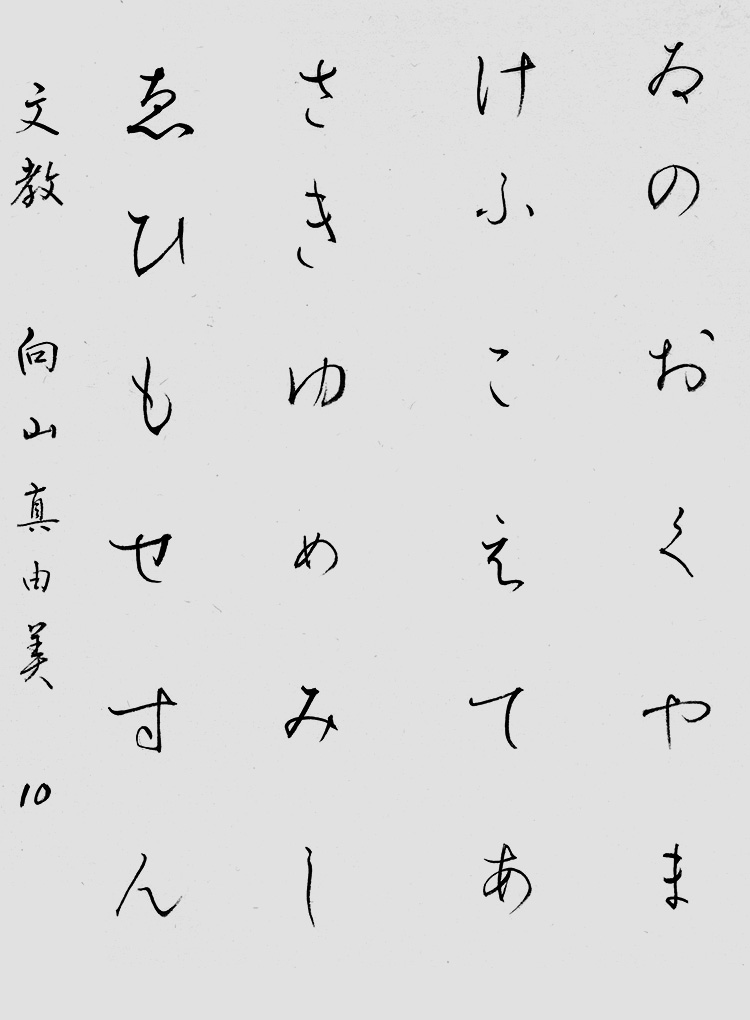 ゐのおくやま
けふこえてあ
さきゆめみし
ゑひもせすん
文教 向山真由美 10